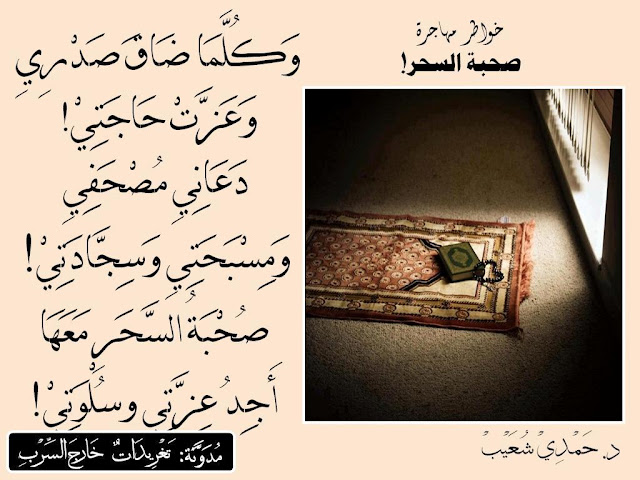 خواطر مهاجرة
صحبة السحر!
وَكُلَّمَا ضَاقَ صَدْرِي
وَعَزَّتْ حَاجَتِيْ!
دَعَانِي مُصْحَفِي
وَمِسْبَحَتِي وَسِجَّادَتِيْ!
صُحْبَةُ السَّحَرِ مَعَهَا
أَجِدُ عِزَّتِي وسُلْوَتِيْ!
مُدَوَّنَة: تَغْرِيدَاتٌ خَارِجَ السِّرْبِ
د. حَمْدِيْ شُعَيْبْ